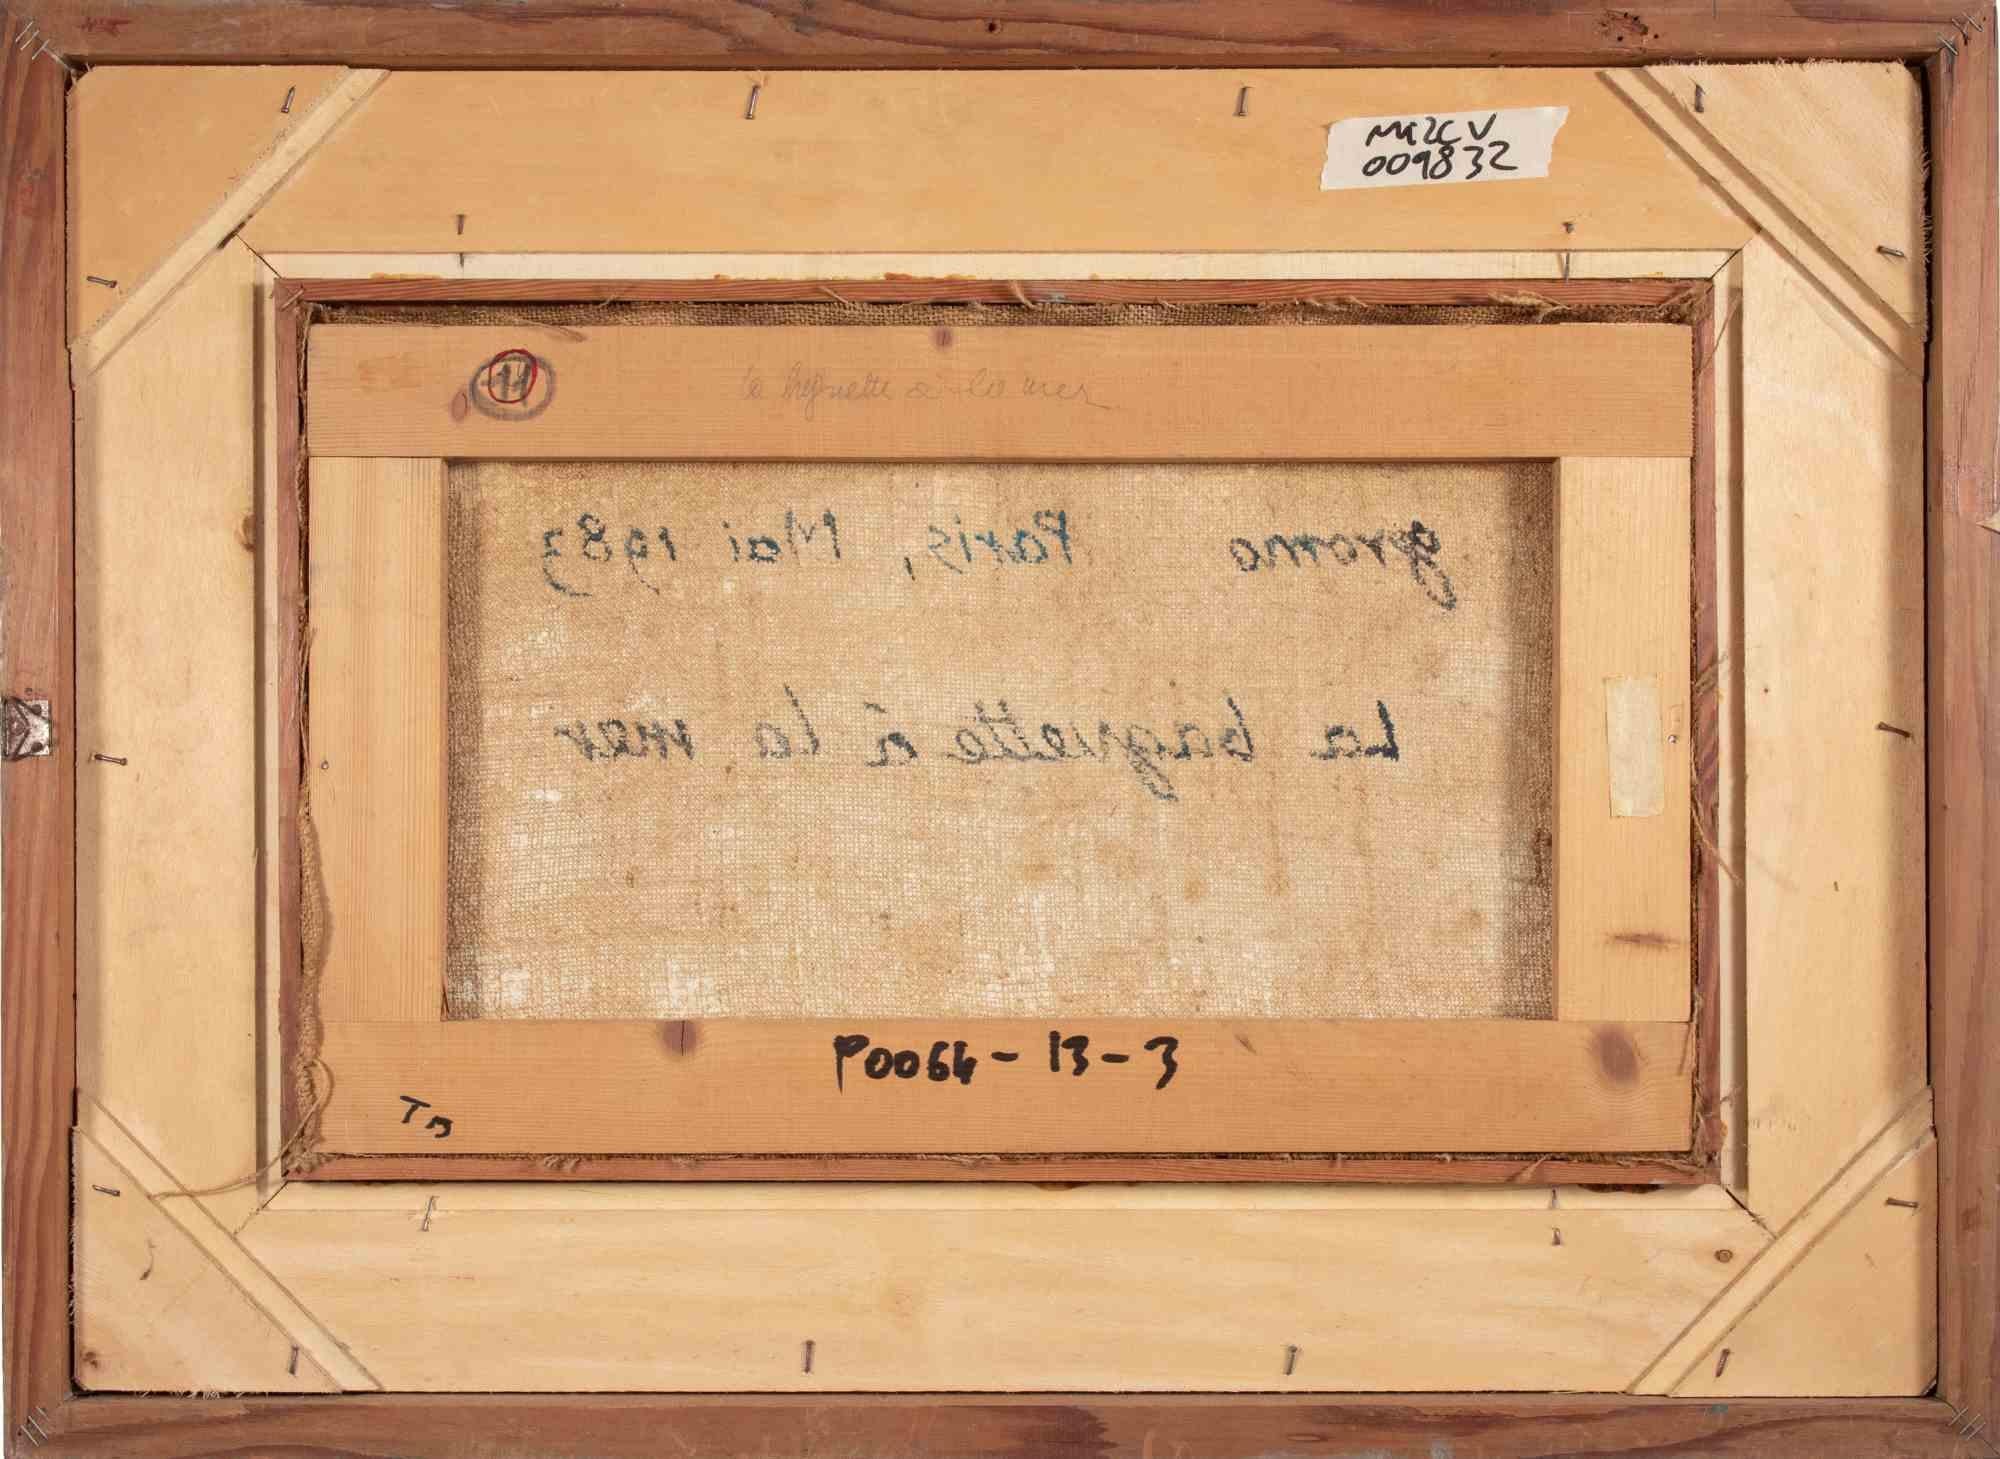 MAZCV
009832
11
la baguette à la mer
gromo Paris, Mai 1983
La baguette à la mer
P0064-13-3
TB